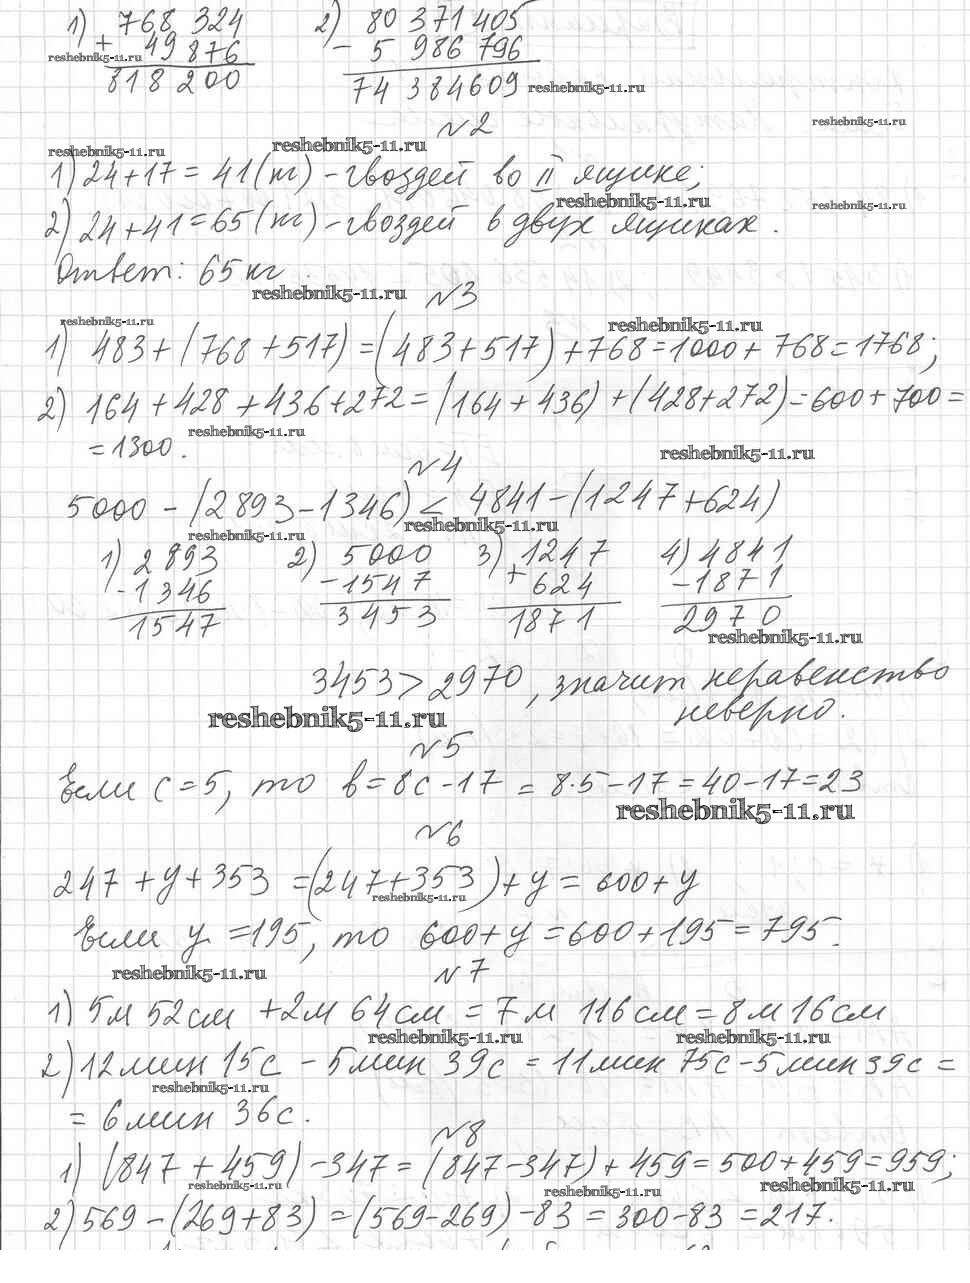 1) 768 324 2) 80 371 405
+ 49 876 - 5 986 796
reshebnik5-11.ru
818 200 74 384609 reshebnik5-11.ru
№2 reshebnik5-11.ru
reshebnik5-11.ru reshebnik5-11.ru
1) 24+17 = 41(кг) - гвоздей во II ящике;
reshebnik5-11.ru reshebnik5-11.ru
2) 24+41=65(кг) - гвоздей в двух ящиках.
Ответ: 65 кг
reshebnik5-11.ru №3
reshebnik5-11.ru reshebnik5-11.ru
1) 483+(768+517)=(483+517)+768=1000+768=1768;
2) 164+428+436+272=(164+436)+(428+272)=600+700=
reshebnik5-11.ru
=1300. reshebnik5-11.ru
№4
5000-(2893-1346) < 4841-(1247+624)
reshebnik5-11.ru reshebnik5-11.ru
1) 2893 2) 5000 3) 1247 4) 4841
-1346 -1547 +624 -1871
1547 3453 1871 2970
reshebnik5-11.ru
3453>2970, значит неравенство
неверно.
reshebnik5-11.ru
№5
Если c=5, то b=8c-17 = 8·5-17=40-17=23
reshebnik5-11.ru
№6
247+y+353 =(247+353)+y=600+y
reshebnik5-11.ru
Если y=195, то 600+y=600+195=795.
reshebnik5-11.ru №7
1) 5м 52см +2м 64см = 7м 116см=8м16см
reshebnik5-11.ru reshebnik5-11.ru
2) 12мин 15с - 5мин 39с = 11мин 75с-5мин39с=
reshebnik5-11.ru
= 6мин 36с.
№8
1) (847+459)-347=(847-347)+459=500+459=959;
reshebnik5-11.ru reshebnik5-11.ru reshebnik5-11.ru
2) 569-(269+83)=(569-269)-83=300-83=217.